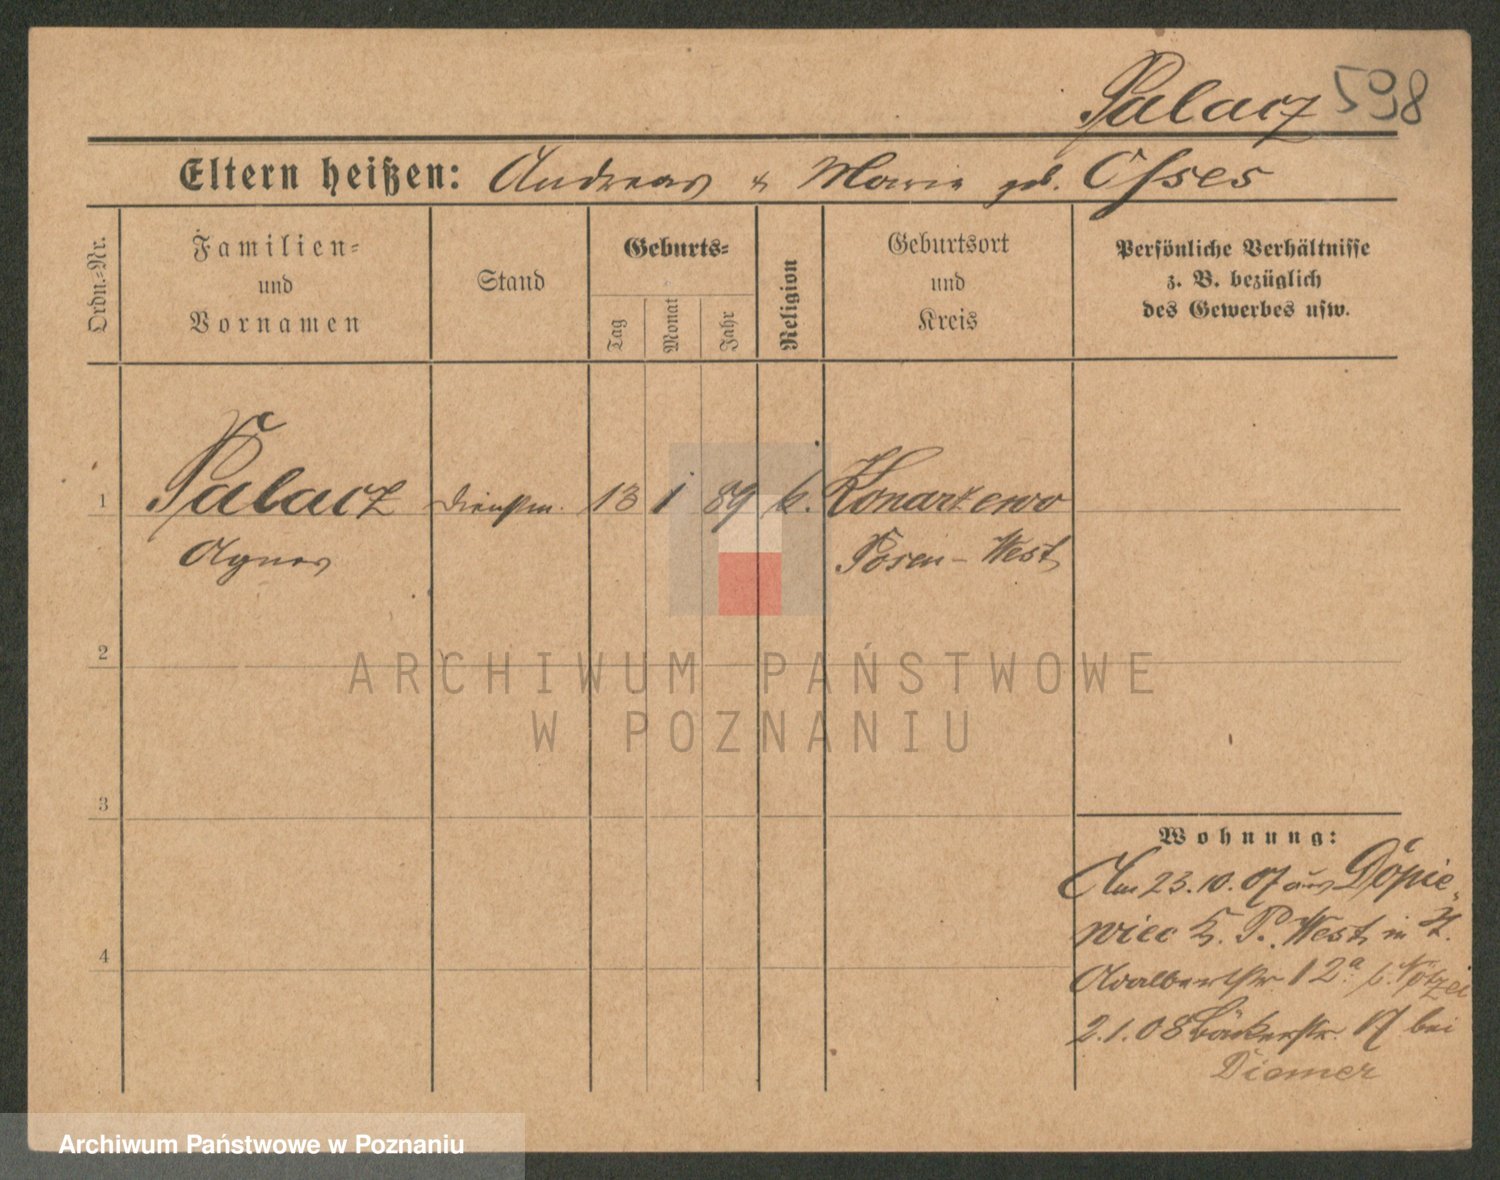 Palacz 598
Eltern heißen: Andreas & Marie geb.
Ordn.-Nr.
Familien-
und
Vornamen
Stand
Geburts-
Tag
Monat
Jahr
Religion
Geburtsort
und
Kreis
Persönliche Verhältnisse
z. B. bezüglich
des Gewerbes usw.
1 Palacz Dienstm. 13 1 89 k. Konarzewo
Agnes Posen-West
2
ARCHIWUM PAŃSTWOWE
W POZNANIU
3
Wohnung:
Am 23.10.07 aus Dopie-
wiec K. P. West in
4
Adalbertstr. 12a b.
2.1.08 Bäckerstr. 17 bei
Diemer
Archiwum Państwowe w Poznaniu